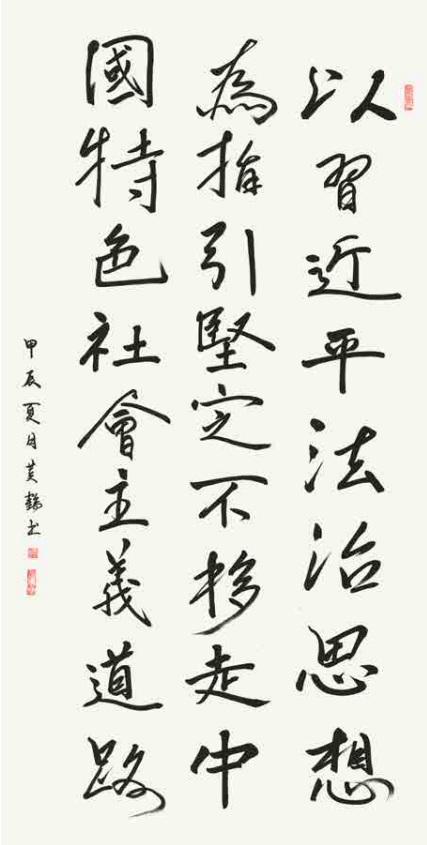 以習近平法治思想
為指引堅定不移走中
國特色社會主義道路
甲辰夏月黃鵜书